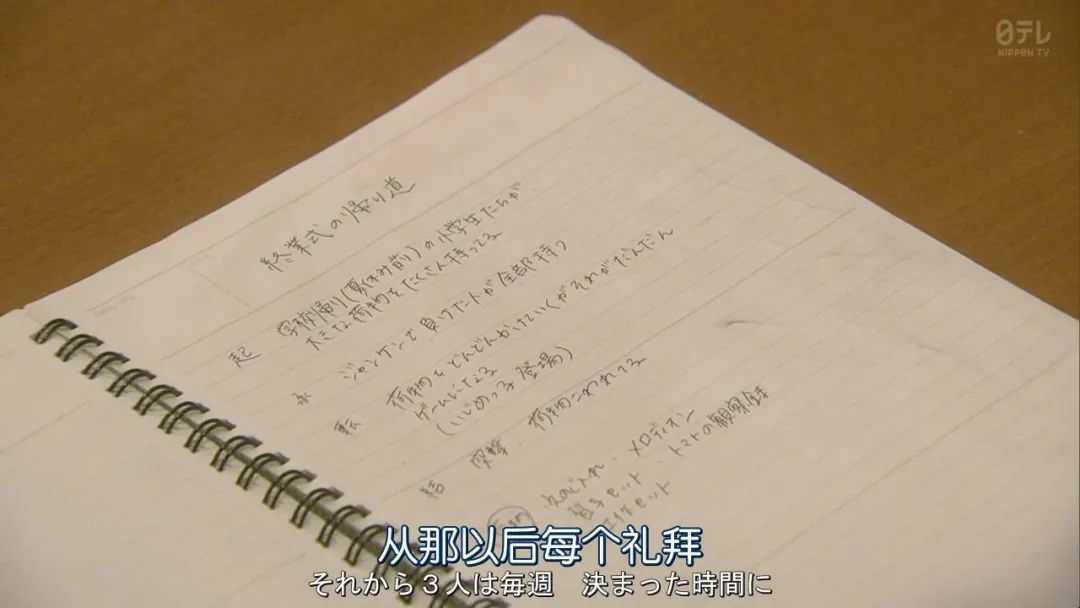 日テレ
NIPPON TV
終業式の帰り道
起 学校帰り(夏休み前)の小学生たちが
大きな荷物をたくさん持ってる
承 ジャンケンで負けた人が全部持つ
転 荷物をどんどんかけていくがそれがだんだん
ゲームになる
(いじめっ子登場)
結 突撃、荷物こわれてる
絵の具入れ、メロディオン
習字セット、トマトの観察録
工作セット
从那以后每个礼拜
それから3人は毎週 決まった時間に